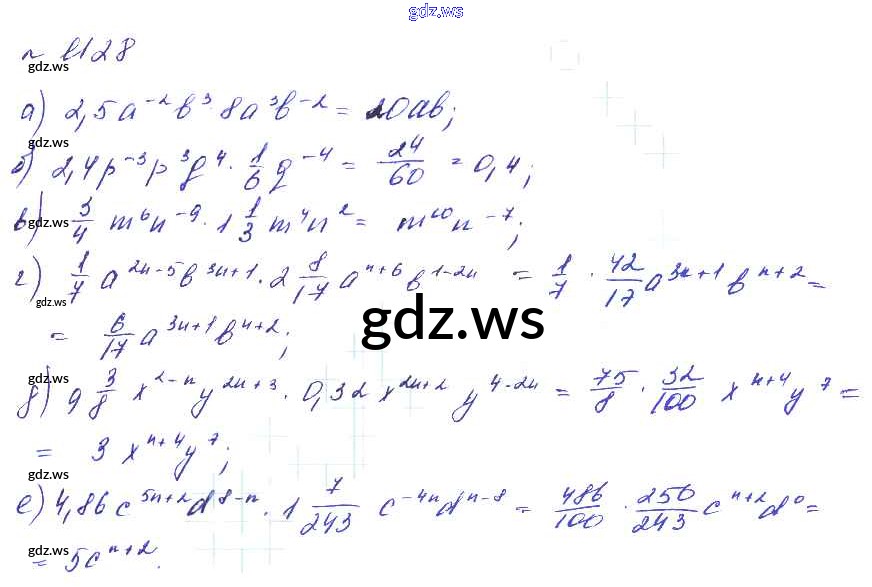 gdz.ws
№ 1128
gdz.ws
а) 2,5a⁻²b³ 8a³b⁻² = 20ab;
gdz.ws
б) 2,4p⁻³p³g⁴ · 1/6 g⁻⁴ = 24/60 = 0,4;
в) 3/4 m⁶n⁻⁹ · 1 1/3 m⁴n² = m¹⁰n⁻⁷;
gdz.ws
г) 1/7 a²ⁿ⁻⁵b³ⁿ⁺¹ · 2 8/17 aⁿ⁺⁶b¹⁻²ⁿ = 1/7 · 42/17 a³ⁿ⁺¹bⁿ⁺² =
gdz.ws
= 6/17 a³ⁿ⁺¹bⁿ⁺²;
gdz.ws
gdz.ws
д) 9 3/8 x²⁻ⁿy²ⁿ⁺³ · 0,32x²ⁿ⁺²y⁴⁻²ⁿ = 75/8 · 32/100 xⁿ⁺⁴y⁷ =
= 3xⁿ⁺⁴y⁷;
gdz.ws
е) 4,86c⁵ⁿ⁺²d⁸⁻ⁿ · 1 7/243 c⁻⁴ⁿdⁿ⁻⁸ = 486/100 · 250/243 cⁿ⁺²d⁰ =
gdz.ws
= 5cⁿ⁺².